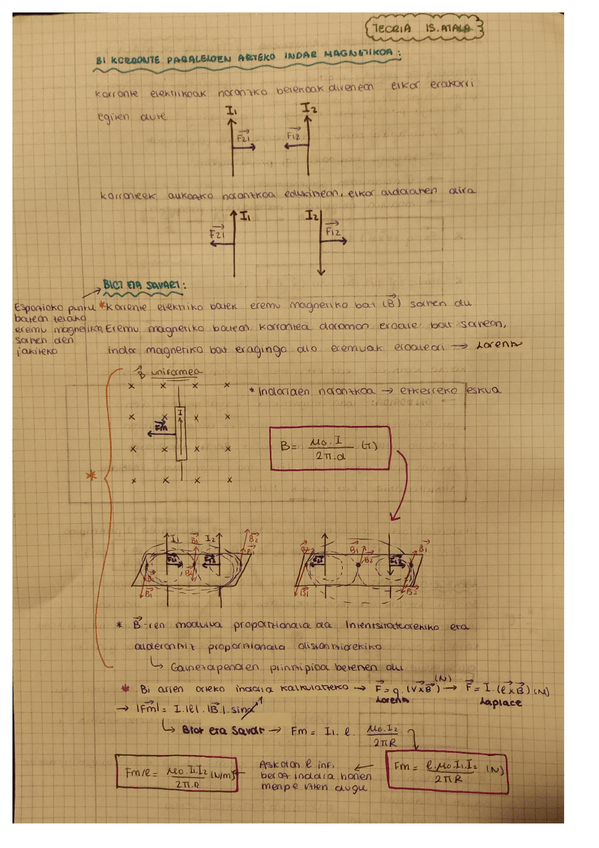 TEORIA 15. ATALA
BI KORRONTE PARALELOEN ARTEKO INDAR MAGNETIKOA:
korronte elektrikoak norantzko berekoak direnean elkar erakarri
egiten dute
I₁ I₂
F₂₁ F₁₂
korronteek aurkako norantzkoa edukitzean, elkar aldaratzen dira
I₁ I₂
F₂₁ F₁₂
BIOT ETA SAVART:
Espazioko puntu
batean zelako
eremu magnetikoa
sortzen den
jakiteko
* korronte elektriko batek eremu magnetiko bat (B⃗) sortzen du
Eremu magnetiko batean korrontea daraman eroale bat sartzean,
indar magnetiko bat eragingo dio eremuak eroaleari → Lorentz
B⃗ uniformea
* Indarraren norantzkoa → ezkerreko eskua
I
Fm
B = μ₀·I / 2π·d (T)
*
I₁ I₂ B₁ B₂
B₁ B₂
* B⃗-ren modulua proportzionala da Intentsitatearekiko eta
alderantziz proportzionala distantziarekiko
↳ Gainezarpenaren printzipioa betetzen du
* Bi arien arteko indarra kalkulatzeko → F⃗ = q·(v⃗×B⃗) (N) → F⃗ = I·(ℓ⃗×B⃗) (N)
Lorentz Laplace
→ |Fm| = I·|ℓ|·|B⃗|·sinα 1
↳ Biot eta Savart → Fm = I₁·ℓ· μ₀·I₂ / 2πR
Fm = ℓ·μ₀·I₁·I₂ / 2πR (N)
Askotan ℓ infi.
beraz indarra honen
menpe uzten dugu
Fm/ℓ = μ₀·I₁·I₂ / 2π·d (N/m)